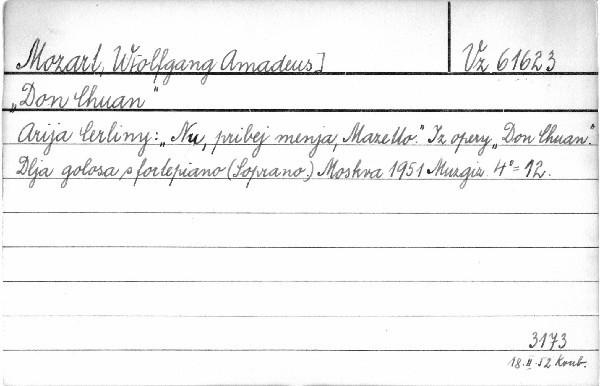 Mozart, W[olfgang Amadeus] Vz 61623
„Don Chuan"
Arija Cerliny: „Nu, pribej menja, Mazetto." Iz opery „Don Chuan".
Dlja golosa s fortepiano (Soprano.) Moskva 1951 Muzgiz. 4° = 12.
3173
18.II.52 Koub.